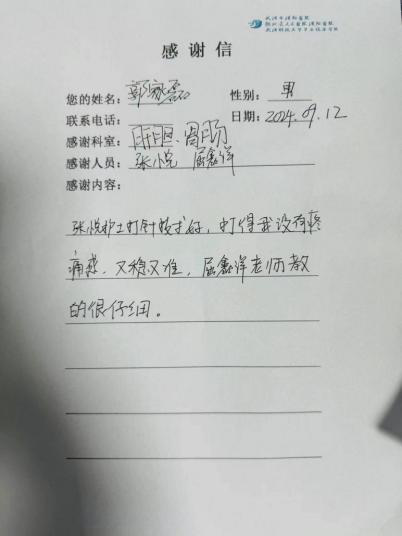 武汉市汉阳医院
感谢信
您的姓名：郭家磊 性别：男
联系电话： 日期：2024.09.12
感谢科室：肝胆、胃肠
感谢人员：张悦 屈鑫洋
感谢内容：
张悦护士打针技术好，打得我没有疼
痛感、又稳又准，屈鑫洋老师教
的很仔细。